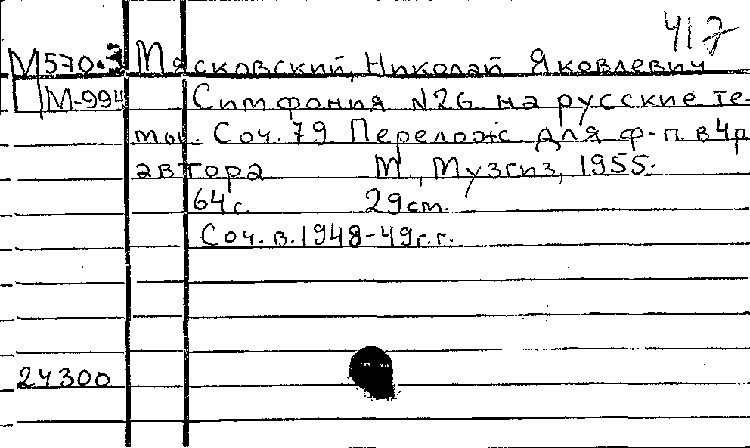 417
М570.3 Мясковский, Николай Яковлевич
М-994 Симфония N26 на русские те-
мы. Соч. 79. Перелож. для ф-п. в 4р
автора М., Музгиз, 1955.
64с. 29см.
Соч. в. 1948-49г.г.
24300